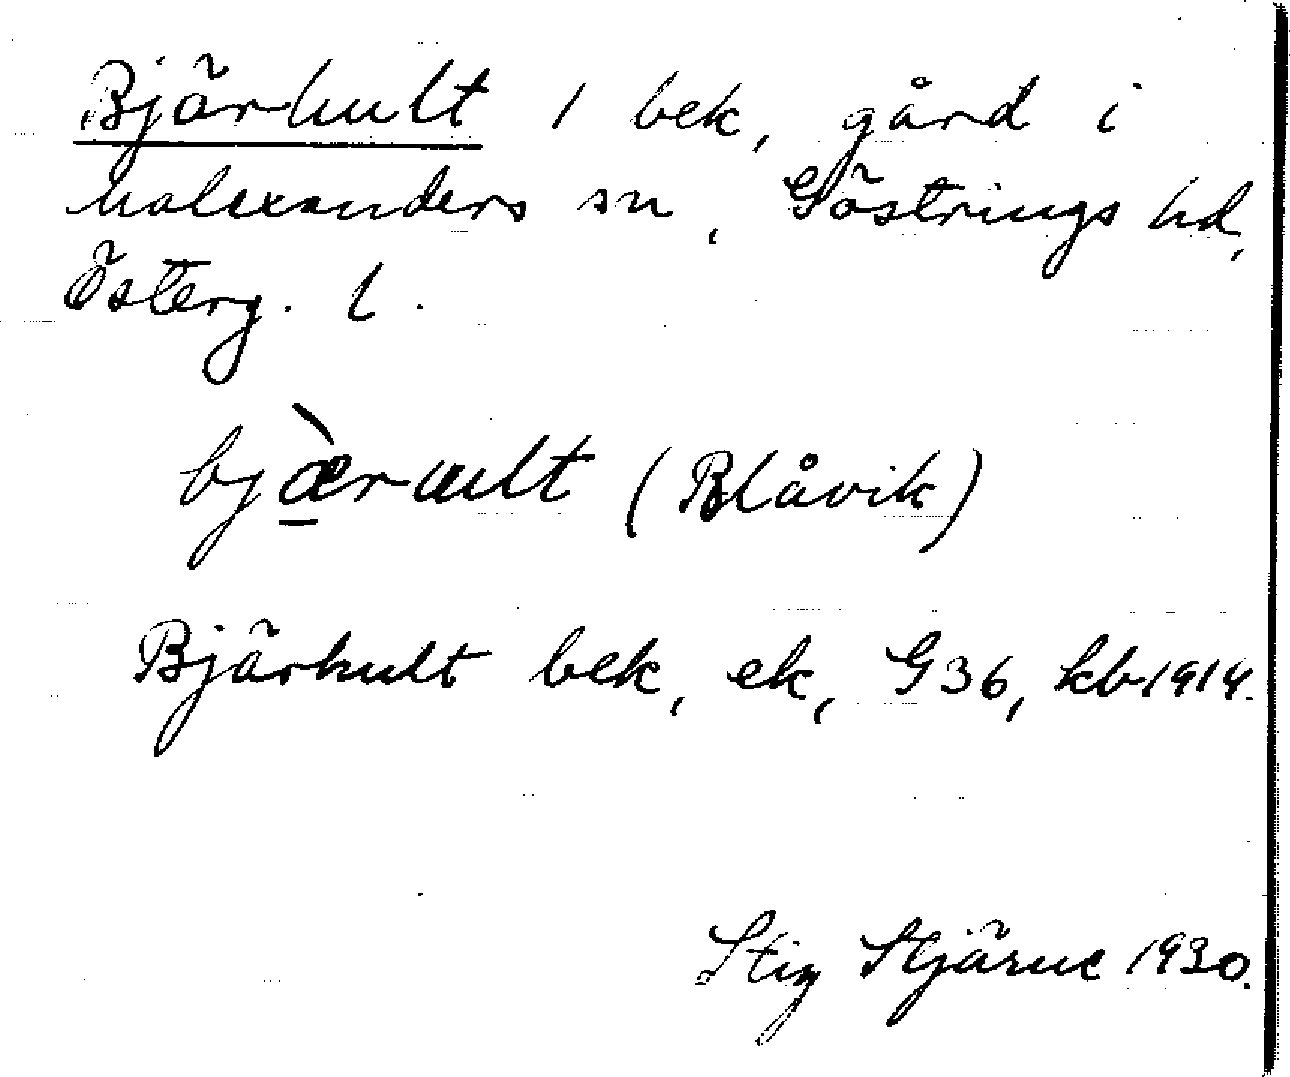 Bjärhult 1 bek, gård i
Malexanders sn, Göstrings hd,
Österg. l.
bj<u>æ̀</u>rault (Blåvik)
Bjärhult bek, ek, G36, kb 1914.
Stig Stjärne 1930.